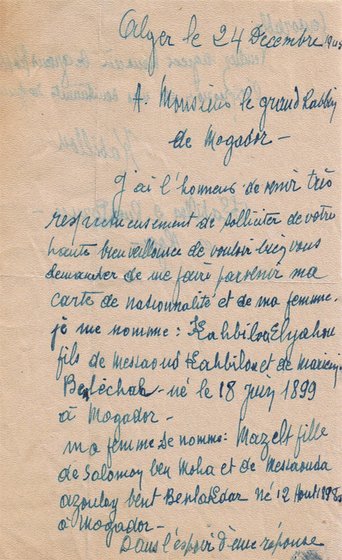 Alger le 24 Décembre
A. Monsieur le grand Rabbin
de Mogador -
J'ai l'honneur de venir très
respectueusement de solliciter de votre
haute bienveillance de vouloir bien vous
demander de me faire parvenir ma
carte de nationnalité et de ma femme.
je me nomme : Kahbilou Elyahou
fils de Messaoud Kahbilou et de
né le 18 juin 1899
à Mogador -
ma femme se nomme: Mazelt fille
de Salomon ben Moha et de Messaouda
azoulay bent né 12
à Mogador -
Dans l'espoir d'une réponse